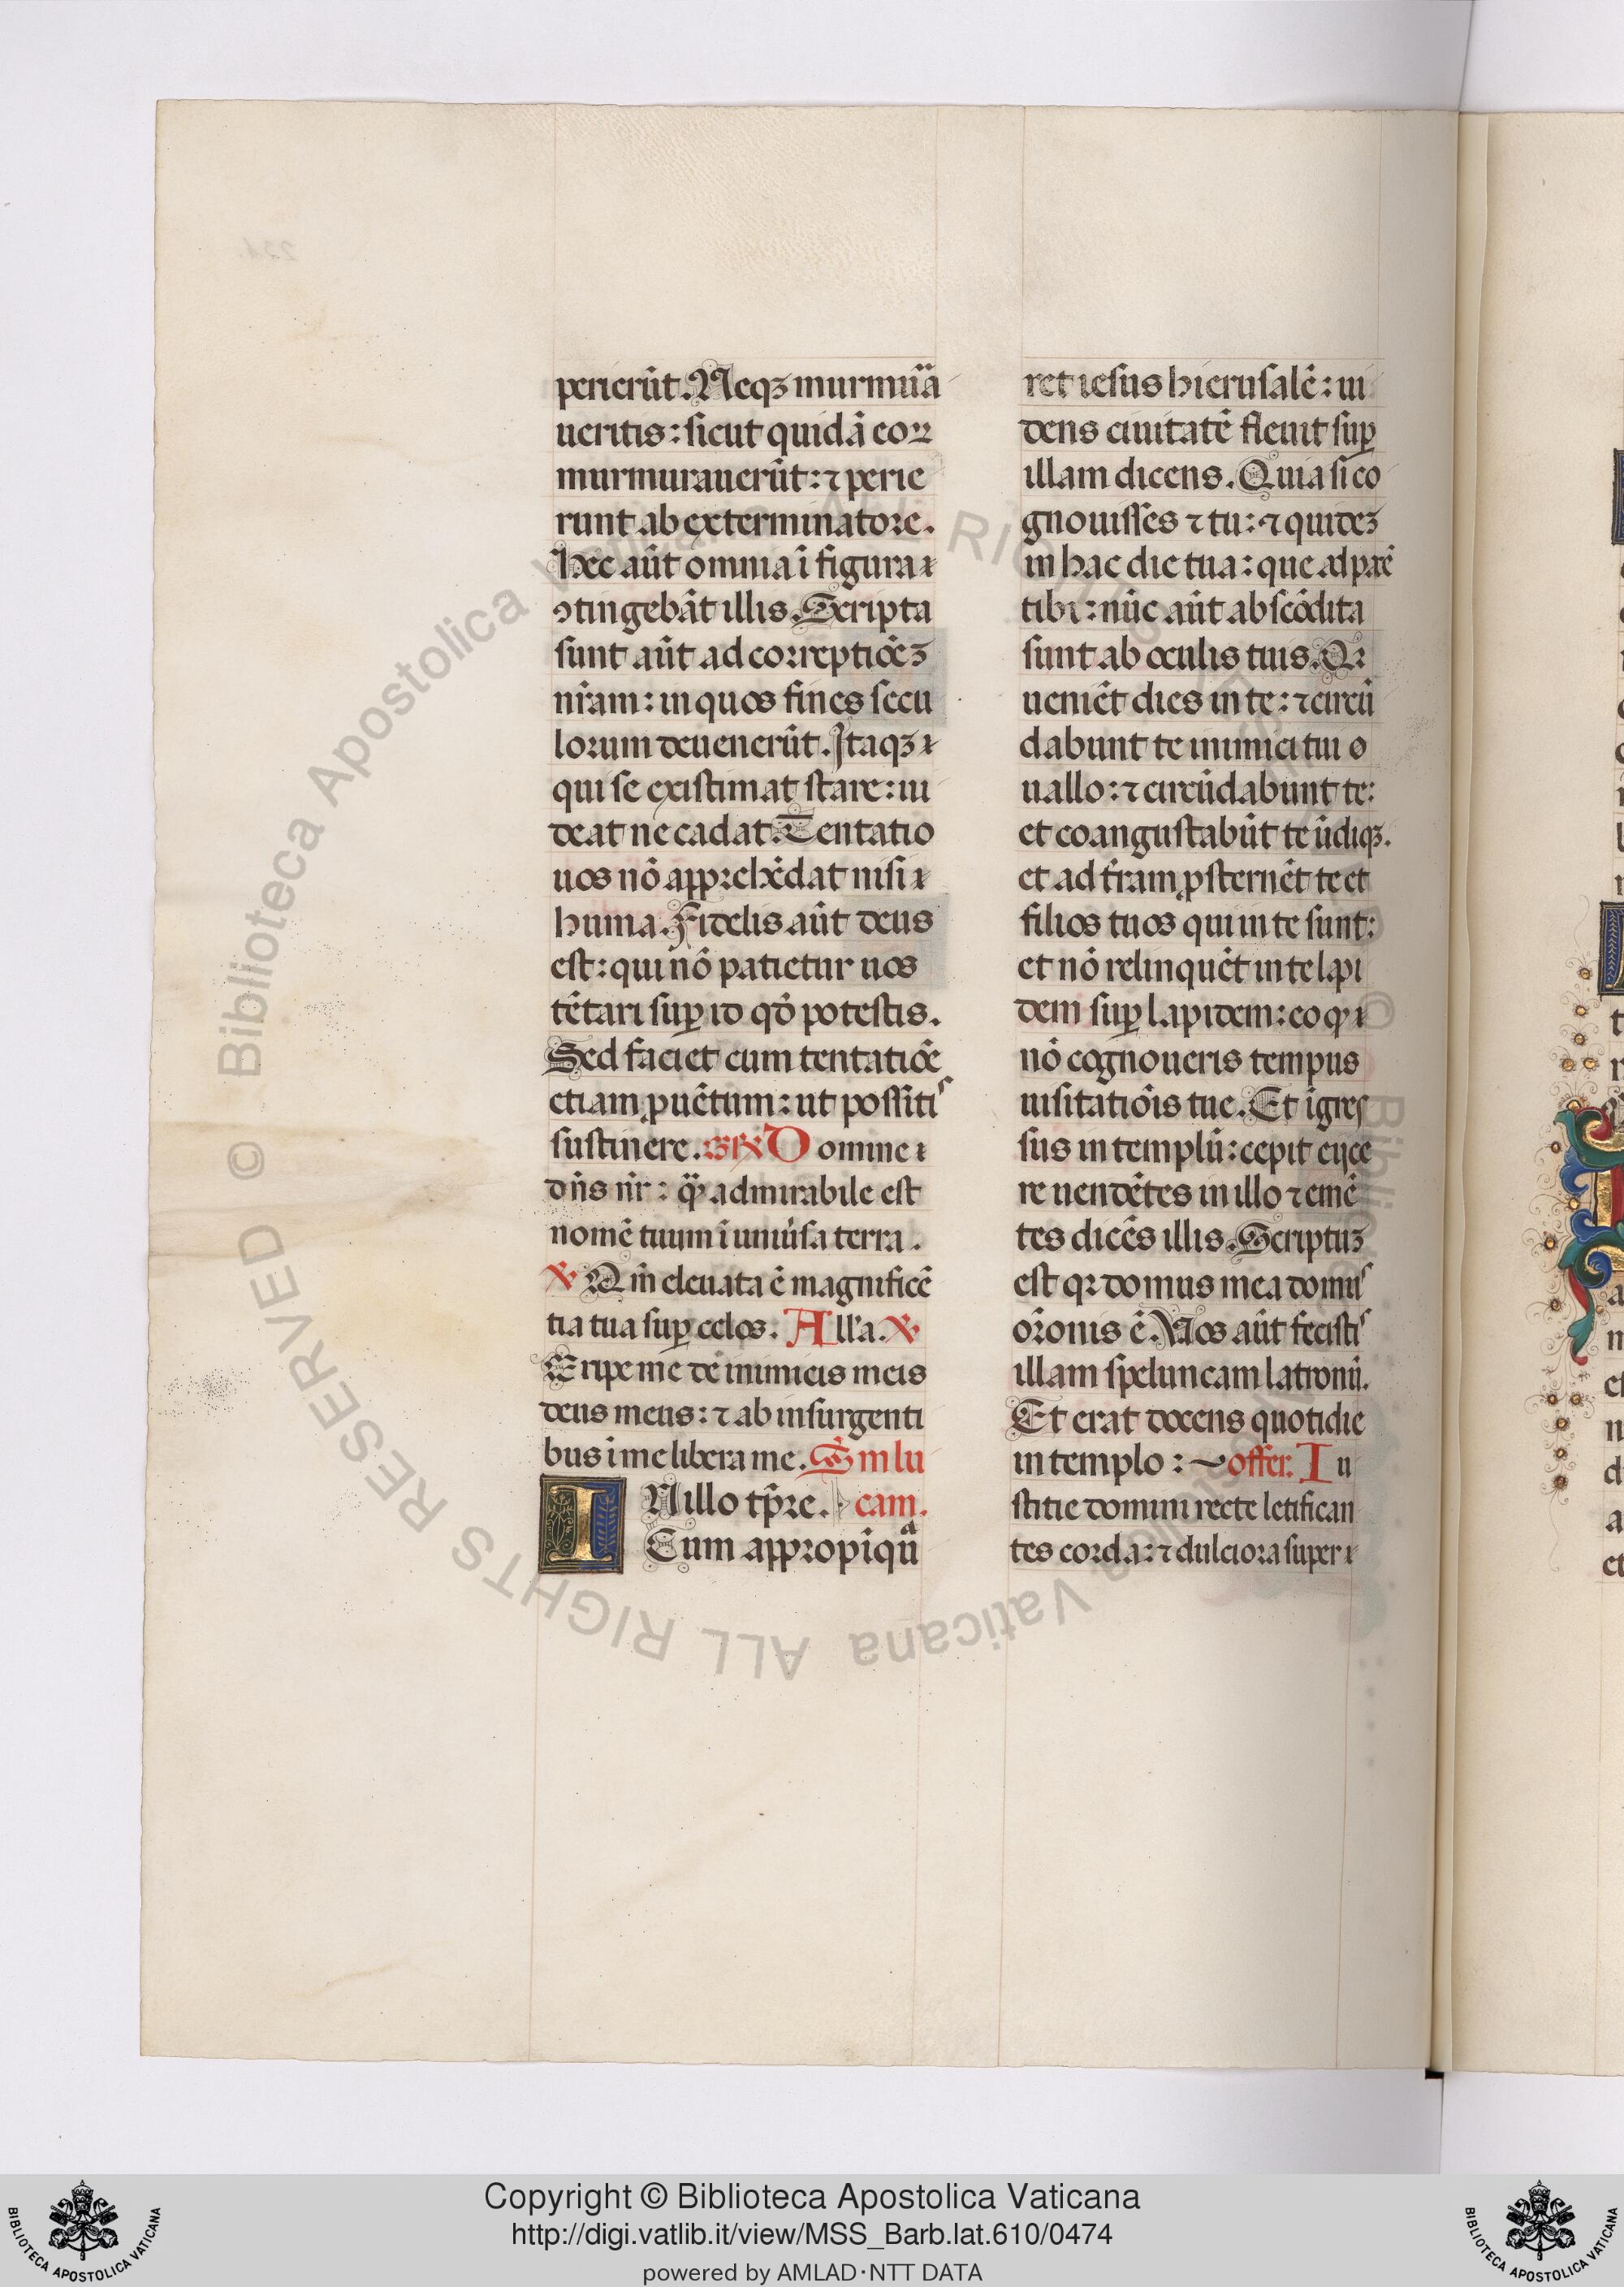 perierūt. Neqꝫ murmuᷓa
ueritis: sicut quidā eoꝝ
murmurauerūt: ⁊ perie
runt ab exterminatore.
Hec aūt omnia ī figura
ꝯtingebāt illis. Scripta
sunt aūt ad correptiōeꝫ
nr̄am: in quos fines secu
lorum deuenerūt. Itaqꝫ
qui se existimat stare: ui
deat ne cadat. Tentatio
uos nō apprehēdat nisi
huma. Fidelis aūt deus
est: qui nō patietur uos
tētari suꝑ id qđ potestis.
Sed faciet cum tentatiōe
etiam ꝓuētum: ut possitis
sustinere. GR Domine
dn̄s nr̄: qᷓ admirabile est
nomē tuum ī uniu'sa terra.
℣ Qm̄ eleuata ē magnificē
tia tua suꝑ celos. All'a. ℣
Eripe me de inimicis meis
deus meus: ⁊ ab insurgenti
bus ī me libera me. Sm lu
IN illo tp̄re. cam.
Cum appropiquᷓ
ret iesus hierusalē: ui
dens ciuitatē fleuit suꝑ
illam dicens. Quia si co
gnouisses ⁊ tu: ⁊ quideꝫ
in hac die tua: que ad pacē
tibi: nūc aūt abscōdita
sunt ab oculis tuis. Qꝛ
ueniēt dies in te: ⁊ circū
dabunt te inimici tui
uallo: ⁊ circūdabunt te:
et coangustabūt te ūdiqꝫ.
et ad tr̄am ꝓsternēt te et
filios tuos qui in te sunt:
et nō relinquēt in te lapi
dem suꝑ lapidem: eo ꝙ
nō cognoueris tempus
uisitatiōis tue. Et īgres
sus in templū: cepit eijce
re uendētes in illo ⁊ emē
tes dicēs illis. Scriptuꝫ
est qꝛ domus mea domus
or̄onis ē. Uos aūt fecistis
illam speluncam latronū.
Et erat docens quotidie
in templo: ~ offer. Iu
stitie domini recte letifican
tes corda: ⁊ dulciora super
BIBLIOTECA APOSTOLICA VATICANA
Copyright © Biblioteca Apostolica Vaticana
http://digi.vatlib.it/view/MSS_Barb.lat.610/0474
powered by AMLAD·NTT DATA
BIBLIOTECA APOSTOLICA VATICANA
© Biblioteca Apostolica Vaticana ALL RIGHTS RESERVED